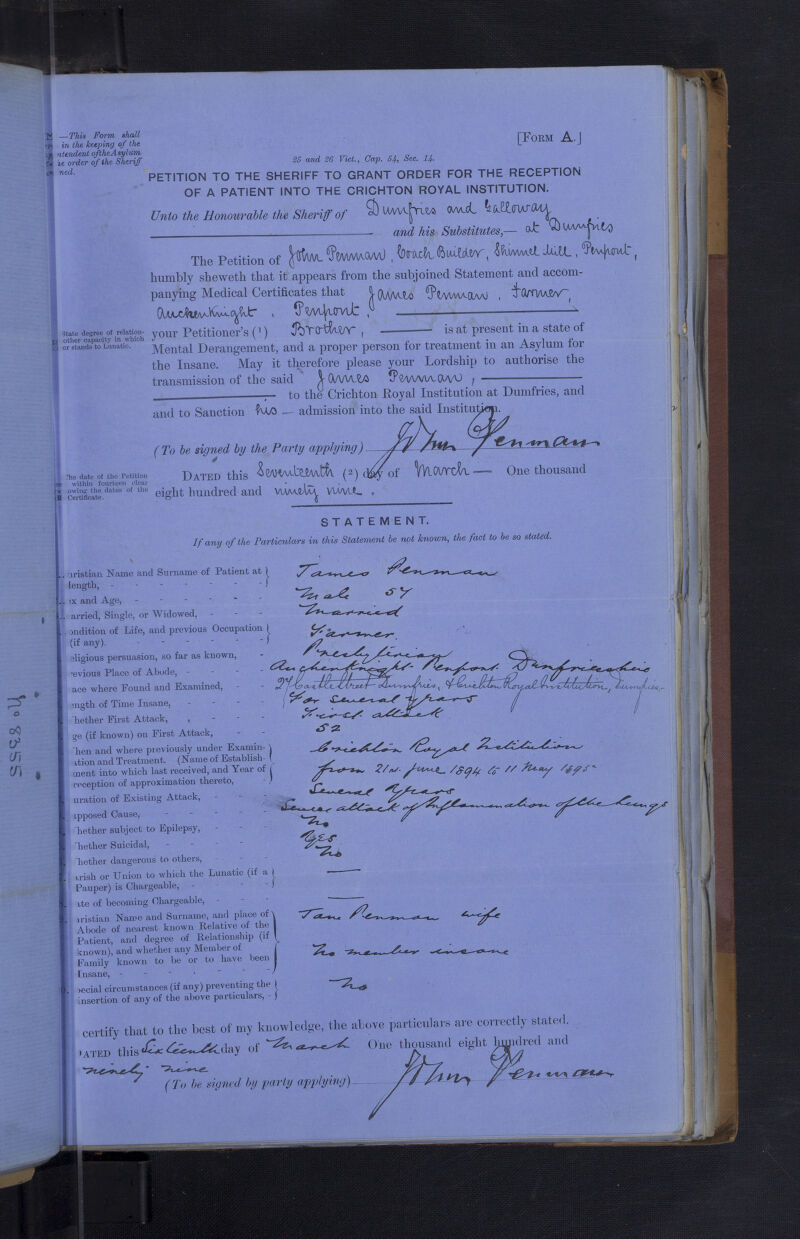 —This Form shall
in the keeping of the
ntendent of the Asylum
he order of the Sheriff
ned.
[FORM A.]
25 and 26 Vict., Cap. 54, Sec. 14.
PETITION TO THE SHERIFF TO GRANT ORDER FOR THE RECEPTION
OF A PATIENT INTO THE CRICHTON ROYAL INSTITUTION.
Unto the Honourable the Sheriff of Dumfries and Galloway
and his Substitutes,— at Dumfries
The Petition of John Penman, Coach Builder, Shinnel Mill, Penpont,
humbly sheweth that it appears from the subjoined Statement and accom-
panying Medical Certificates that James Penman, Farmer,
Auchenknight, Penpont,
State degree of relation-
other capacity in which
or stands to Lunatic.
your Petitioner's (¹) Brother, is at present in a state of
Mental Derangement, and a proper person for treatment in an Asylum for
the Insane. May it therefore please your Lordship to authorise the
transmission of the said James Penman,
to the Crichton Royal Institution at Dumfries, and
and to Sanction his — admission into the said Institution.
(To be signed by the Party applying) John Penman
The date of the Petition
within fourteen clear
owing the dates of the
Certificate.
DATED this Seventeenth (²) day of March — One thousand
eight hundred and ninety nine.
STATEMENT.
If any of the Particulars in this Statement be not known, the fact to be so stated.
ristian Name and Surname of Patient at
length, - James Penman
ex and Age, - Male 57
arried, Single, or Widowed, - Married
ondition of Life, and previous Occupation
(if any). Farmer.
eligious persuasion, so far as known, - Presbyterian
evious Place of Abode, - Auchenknight Penpont Dumfriesshire
ace where Found and Examined, - 27 Castle Street Dumfries, & Crichton Royal Institution, Dumfries.
ength of Time Insane, - For several years
hether First Attack, - First attack
ge (if known) on First Attack, - 52
hen and where previously under Examin-
ation and Treatment. (Name of Establish-
ment into which last received, and Year of
reception of approximation thereto, Crichton Royal Institution
from 21st June 1894 to 11 May 1895
uration of Existing Attack, - Several Years
upposed Cause, - Severe attack of Inflammation of the lungs
hether subject to Epilepsy, - No
hether Suicidal, - Yes
hether dangerous to others, - No
arish or Union to which the Lunatic (if a
Pauper) is Chargeable, - —
ate of becoming Chargeable, - —
ristian Name and Surname, and place of
Abode of nearest known Relative of the
Patient, and degree of Relationship (if
known), and whether any Member of
Family known to be or to have been
Insane, - Jane Penman wife
No member insane
pecial circumstances (if any) preventing the
insertion of any of the above particulars, - No
certify that to the best of my knowledge, the above particulars are correctly stated.
DATED this Sixteenth day of March One thousand eight hundred and
ninety nine
(To be signed by party applying) John Penman
No 8355